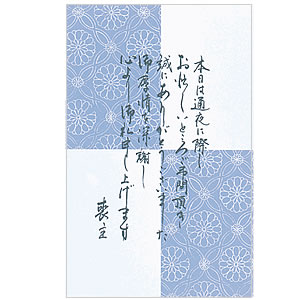 本日は通夜に際し
お忙しいところご弔問頂き
誠にありがとうございました
御厚情を深謝し
心より御礼申し上げます
喪主